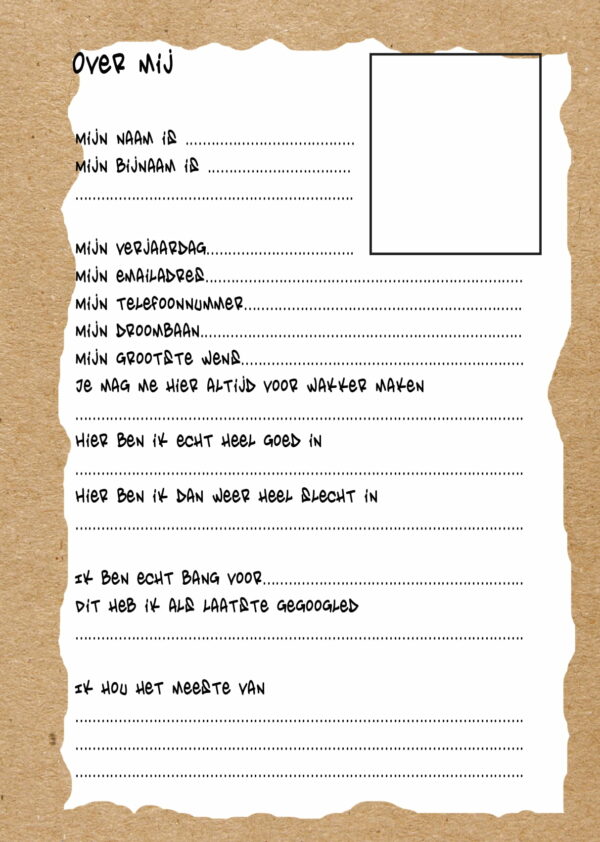 Over mij
Mijn naam is ....................................
Mijn bijnaam is ..............................
............................................................
Mijn verjaardag...............................
Mijn emailadres....................................................................
Mijn telefoonnummer............................................................
Mijn droombaan.....................................................................
Mijn grootste wens.............................................................
Je mag me hier altijd voor wakker maken
................................................................................................
Hier ben ik echt heel goed in
................................................................................................
Hier ben ik dan weer heel slecht in
................................................................................................
Ik ben echt bang voor........................................................
Dit heb ik als laatste gegoogled
................................................................................................
Ik hou het meeste van
................................................................................................
................................................................................................
................................................................................................